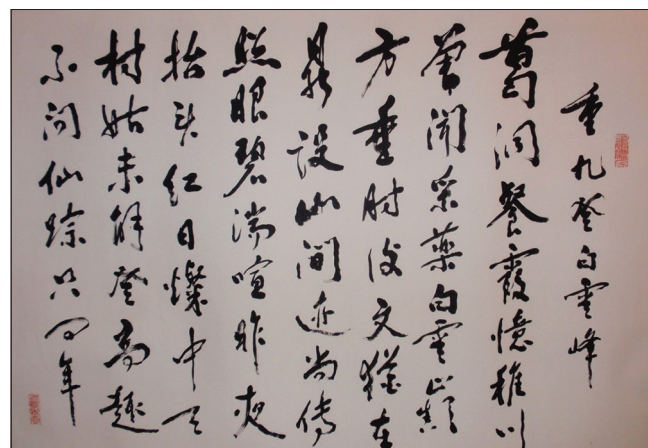 重九登白雲峰
葛洞餐霞憶稚川
曾聞采藥白雲巔
方垂肘後文猶在
鼎設山間迹尚傳
照眼碧湍喧昨夜
抬头红日燦中天
村姑未解登高趣
不问仙踪只问年